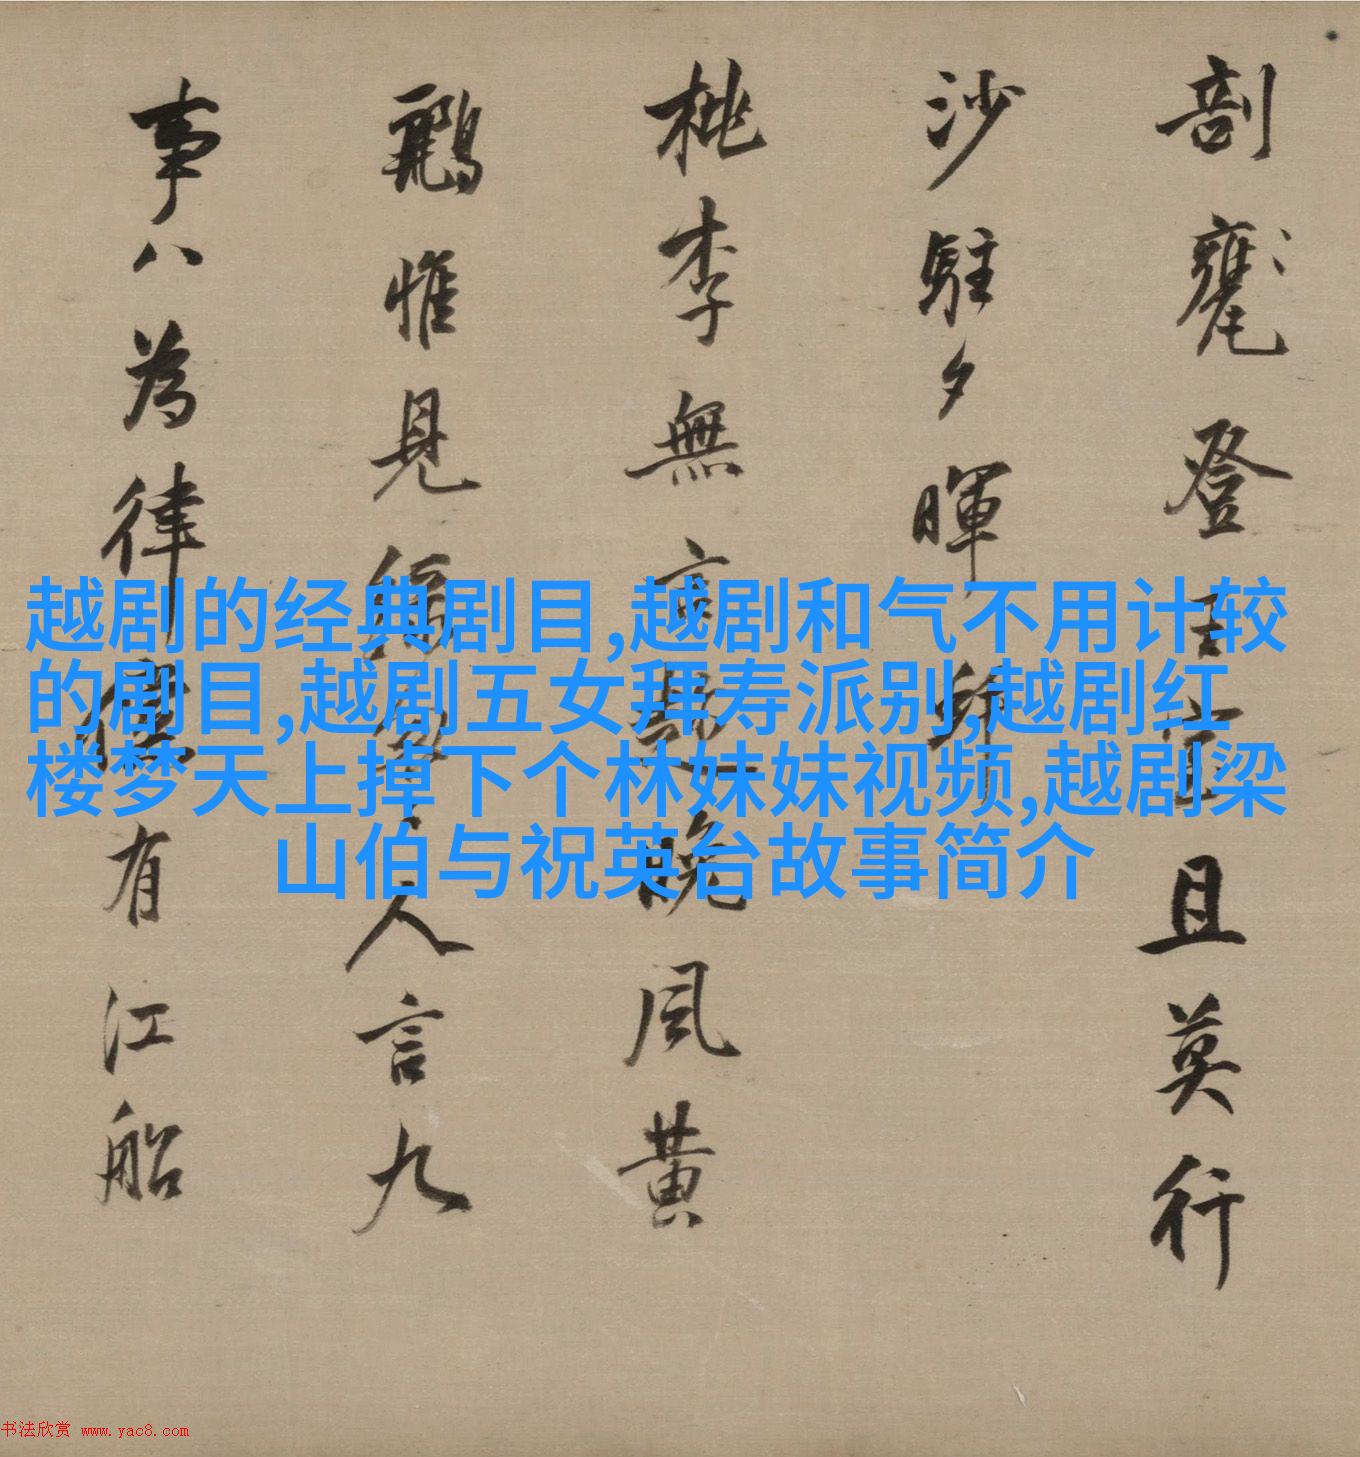 剖甕登
且莫行
沙駐夕暉
桃李無言
晚風黄
鸘惟見
人言九
事八為律
有江船
越剧的经典剧目,越剧和气不用计较
的剧目,越剧五女拜寿派别,越剧红
楼梦天上掉下个林妹妹视频,越剧梁
山伯与祝英台故事简介
书法欣赏 www.yac8.com